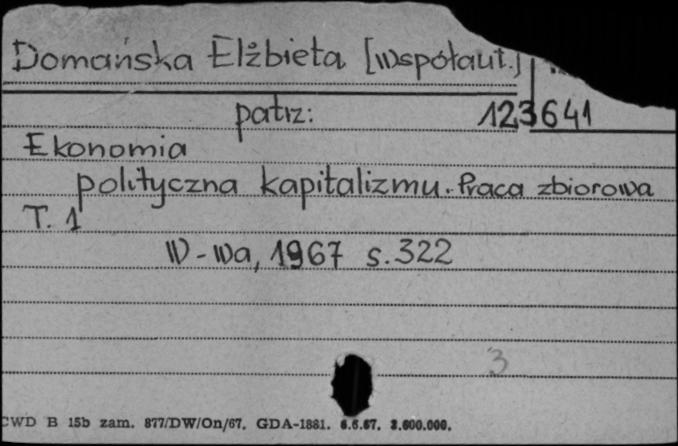 Domańska Elżbieta [współaut.]
patrz: 123641
Ekonomia
polityczna kapitalizmu. Praca zbiorowa
T. 1
W-wa, 1967 s. 322
3
CWD B 15b zam. 877/DW/On/67. GDA-1881. 6.6.67. 3.600.000.